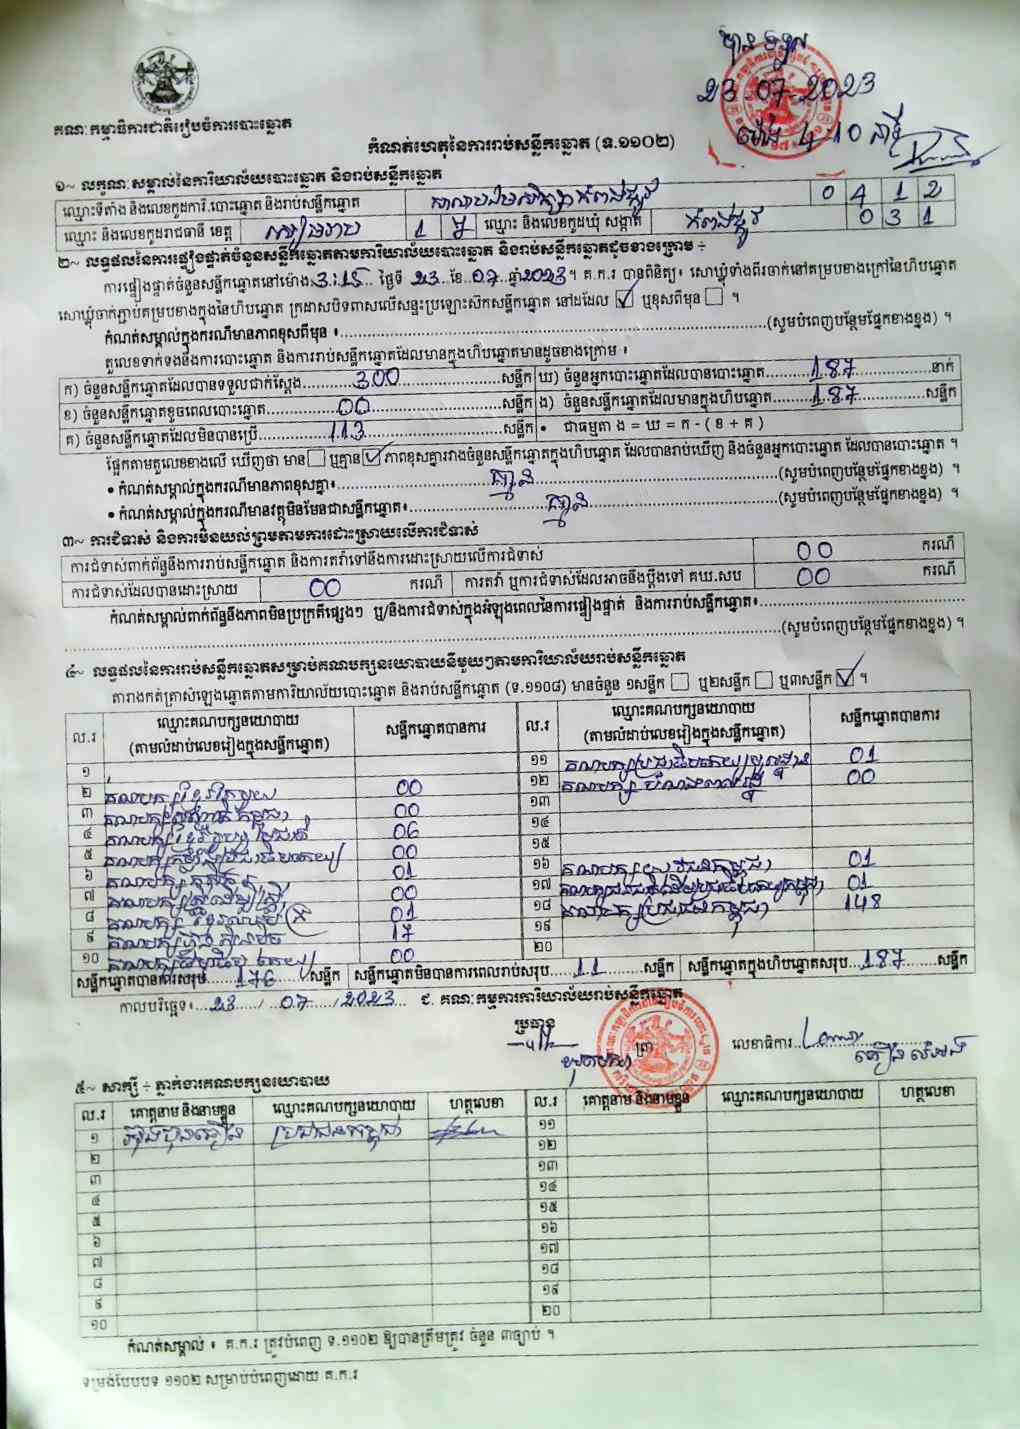 បានទទួល
23 07 2023
ម៉ោង 4:10 នាទី
គណៈកម្មាធិការជាតិរៀបចំការបោះឆ្នោត
កំណត់ហេតុនៃការរាប់សន្លឹកឆ្នោត (ទ.១១០២)
១~ លក្ខណៈសម្គាល់នៃការិយាល័យបោះឆ្នោត និងរាប់សន្លឹកឆ្នោត
ឈ្មោះទីតាំង និងលេខកូដការិ.បោះឆ្នោត និងរាប់សន្លឹកឆ្នោត 0 4 1 2
ឈ្មោះ និងលេខកូដរាជធានី ខេត្ត សៀមរាប 1 7 ឈ្មោះ និងលេខកូដឃុំ សង្កាត់ 0 3 1
២~ លទ្ធផលនៃការផ្ទៀងផ្ទាត់ចំនួនសន្លឹកឆ្នោតតាមការិយាល័យបោះឆ្នោត និងរាប់សន្លឹកឆ្នោតដូចខាងក្រោម ÷
ការផ្ទៀងផ្ទាត់ចំនួនសន្លឹកឆ្នោតនៅម៉ោង 3:15 ថ្ងៃទី 23 ខែ 07 ឆ្នាំ 2023 ។ គ.ក.រ បានពិនិត្យ៖ សោឃ្លុំទាំងពីរចាក់នៅគម្របខាងក្រៅនៃហិបឆ្នោត
សោឃ្លុំចាក់ភ្ជាប់គម្របខាងក្នុងនៃហិបឆ្នោត ក្រដាសបិទពាសលើសន្ទះប្រឡោះស៊ីកសន្លឹកឆ្នោត នៅដដែល ☑ ឬខុសពីមុន ☐ ។
កំណត់សម្គាល់ក្នុងករណីមានភាពខុសពីមុន ៖ (សូមបំពេញបន្ថែមផ្នែកខាងខ្នង) ។
តួលេខទាក់ទងនឹងការបោះឆ្នោត និងការរាប់សន្លឹកឆ្នោតដែលមានក្នុងហិបឆ្នោតមានដូចខាងក្រោម ៖
ក) ចំនួនសន្លឹកឆ្នោតដែលបានទទួលជាក់ស្តែង 300 សន្លឹក ឃ) ចំនួនអ្នកបោះឆ្នោតដែលបានបោះឆ្នោត 187 នាក់
ខ) ចំនួនសន្លឹកឆ្នោតខូចពេលបោះឆ្នោត 00 សន្លឹក ង) ចំនួនសន្លឹកឆ្នោតដែលមានក្នុងហិបឆ្នោត 187 សន្លឹក
គ) ចំនួនសន្លឹកឆ្នោតដែលមិនបានប្រើ 113 សន្លឹក • ជាធម្មតា ង = ឃ = ក - ( ខ + គ )
ផ្អែកតាមតួលេខខាងលើ ឃើញថា មាន ☐ ឬគ្មាន ☑ ភាពខុសគ្នារវាងចំនួនសន្លឹកឆ្នោតក្នុងហិបឆ្នោត ដែលបានរាប់ឃើញ និងចំនួនអ្នកបោះឆ្នោត ដែលបានបោះឆ្នោត ។
• កំណត់សម្គាល់ក្នុងករណីមានភាពខុសគ្នា៖ គ្មាន (សូមបំពេញបន្ថែមផ្នែកខាងខ្នង) ។
• កំណត់សម្គាល់ក្នុងករណីមានវត្ថុមិនមែនជាសន្លឹកឆ្នោត៖ គ្មាន (សូមបំពេញបន្ថែមផ្នែកខាងខ្នង) ។
៣~ ការជំទាស់ និងការមិនយល់ព្រមតាមការដោះស្រាយលើការជំទាស់
ការជំទាស់ពាក់ព័ន្ធនឹងការរាប់សន្លឹកឆ្នោត និងការតវ៉ាទៅនឹងការដោះស្រាយលើការជំទាស់ 00 ករណី
ការជំទាស់ដែលបានដោះស្រាយ 00 ករណី ការតវ៉ា ឬការជំទាស់ដែលអាចនឹងប្តឹងទៅ គឃ.សប 00 ករណី
កំណត់សម្គាល់ពាក់ព័ន្ធនឹងភាពមិនប្រក្រតីផ្សេងៗ ឬ/និងការជំទាស់ក្នុងអំឡុងពេលនៃការផ្ទៀងផ្ទាត់ និងការរាប់សន្លឹកឆ្នោត៖
(សូមបំពេញបន្ថែមផ្នែកខាងខ្នង) ។
៤~ លទ្ធផលនៃការរាប់សន្លឹកឆ្នោតសម្រាប់គណបក្សនយោបាយនីមួយៗតាមការិយាល័យរាប់សន្លឹកឆ្នោត
តារាងកត់ត្រាសំឡេងឆ្នោតតាមការិយាល័យបោះឆ្នោត និងរាប់សន្លឹកឆ្នោត (ទ.១១០៨) មានចំនួន ១សន្លឹក ☐ ឬ២សន្លឹក ☐ ឬ៣សន្លឹក ☑ ។
ល.រ ឈ្មោះគណបក្សនយោបាយ (តាមលំដាប់លេខរៀងក្នុងសន្លឹកឆ្នោត) សន្លឹកឆ្នោតបានការ ល.រ ឈ្មោះគណបក្សនយោបាយ (តាមលំដាប់លេខរៀងក្នុងសន្លឹកឆ្នោត) សន្លឹកឆ្នោតបានការ
១ ១១ 01
២ 00 ១២ 00
៣ 00 ១៣
៤ 06 ១៤
៥ 00 ១៥
៦ 01 ១៦ 01
៧ 00 ១៧ 01
៨ 01 ១៨ គណបក្សប្រជាជនកម្ពុជា 148
៩ 17 ១៩
១០ 00 ២០
សន្លឹកឆ្នោតបានការសរុប 176 សន្លឹក សន្លឹកឆ្នោតមិនបានការពេលរាប់សរុប 11 សន្លឹក សន្លឹកឆ្នោតក្នុងហិបឆ្នោតសរុប 187 សន្លឹក
កាលបរិច្ឆេទ៖ 23 / 07 / 2023 ជ. គណៈកម្មការការិយាល័យរាប់សន្លឹកឆ្នោត
ប្រធាន លេខាធិការ
៥~ សាក្សី ÷ ភ្នាក់ងារគណបក្សនយោបាយ
ល.រ គោត្តនាម និងនាមខ្លួន ឈ្មោះគណបក្សនយោបាយ ហត្ថលេខា ល.រ គោត្តនាម និងនាមខ្លួន ឈ្មោះគណបក្សនយោបាយ ហត្ថលេខា
១ ប្រជាជនកម្ពុជា ១១
២ ១២
៣ ១៣
៤ ១៤
៥ ១៥
៦ ១៦
៧ ១៧
៨ ១៨
៩ ១៩
១០ ២០
កំណត់សម្គាល់ ៖ គ.ក.រ ត្រូវបំពេញ ទ.១១០២ ឱ្យបានត្រឹមត្រូវ ចំនួន ៣ច្បាប់ ។
ទម្រង់បែបបទ ១១០២ សម្រាប់បំពេញដោយ គ.ក.រ